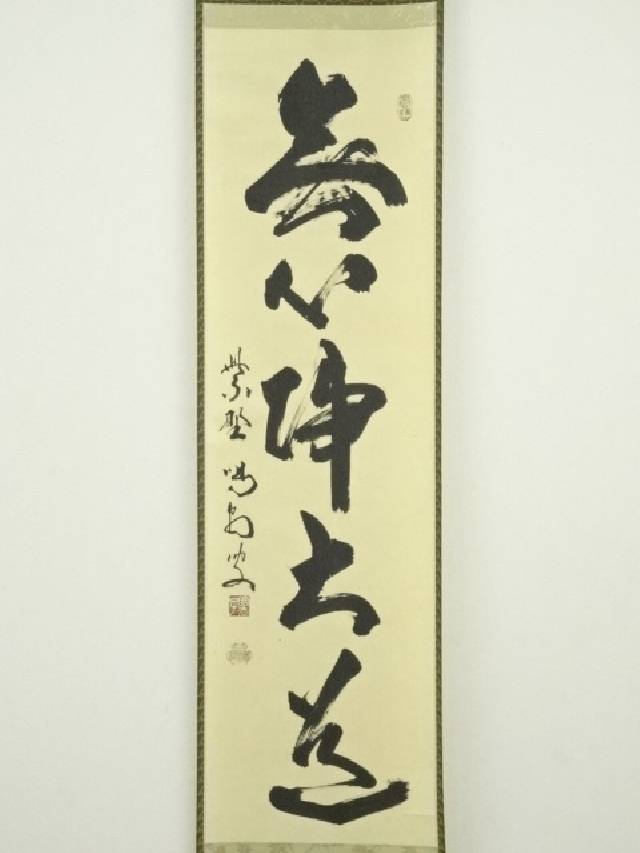 無心帰大道
紫野